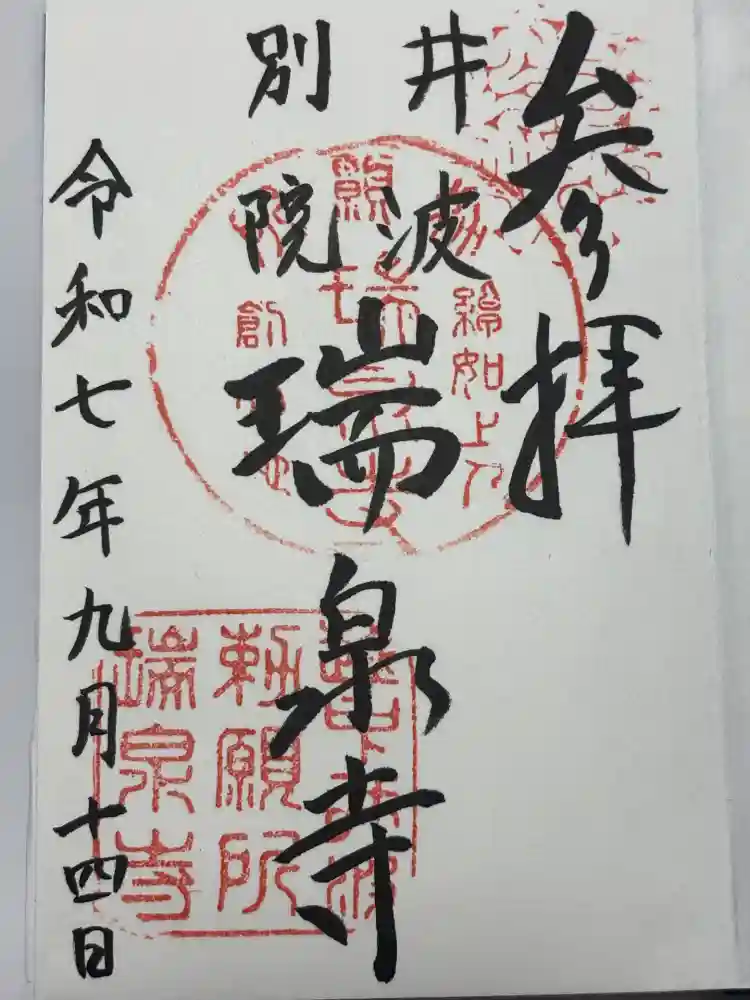 参拝
井波
別院
瑞泉寺
令和七年九月十四日
綽如上人
勅願所
瑞泉寺